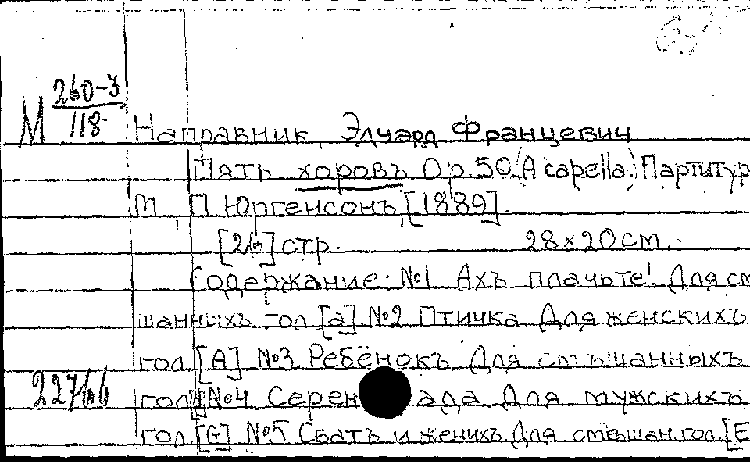 М 260-3/118
Направник, Эдуард Францевич
Пять хоровъ Op. 50 (A capella.) Партитур
М. П. Юргенсонъ [1889].
[26] стр. 28 x 20 см.
Содержание: №1 Ахъ плачьте! Для см
шанныхъ гол [a] №2 Птичка Для женскихъ
гол. [A] №3 Ребёнокъ Для смѣшанныхъ
22766 гол №4 Серенада Для мужскихъ
гол [G] №5 Сватъ и женихъ Для смѣшан. гол. [E